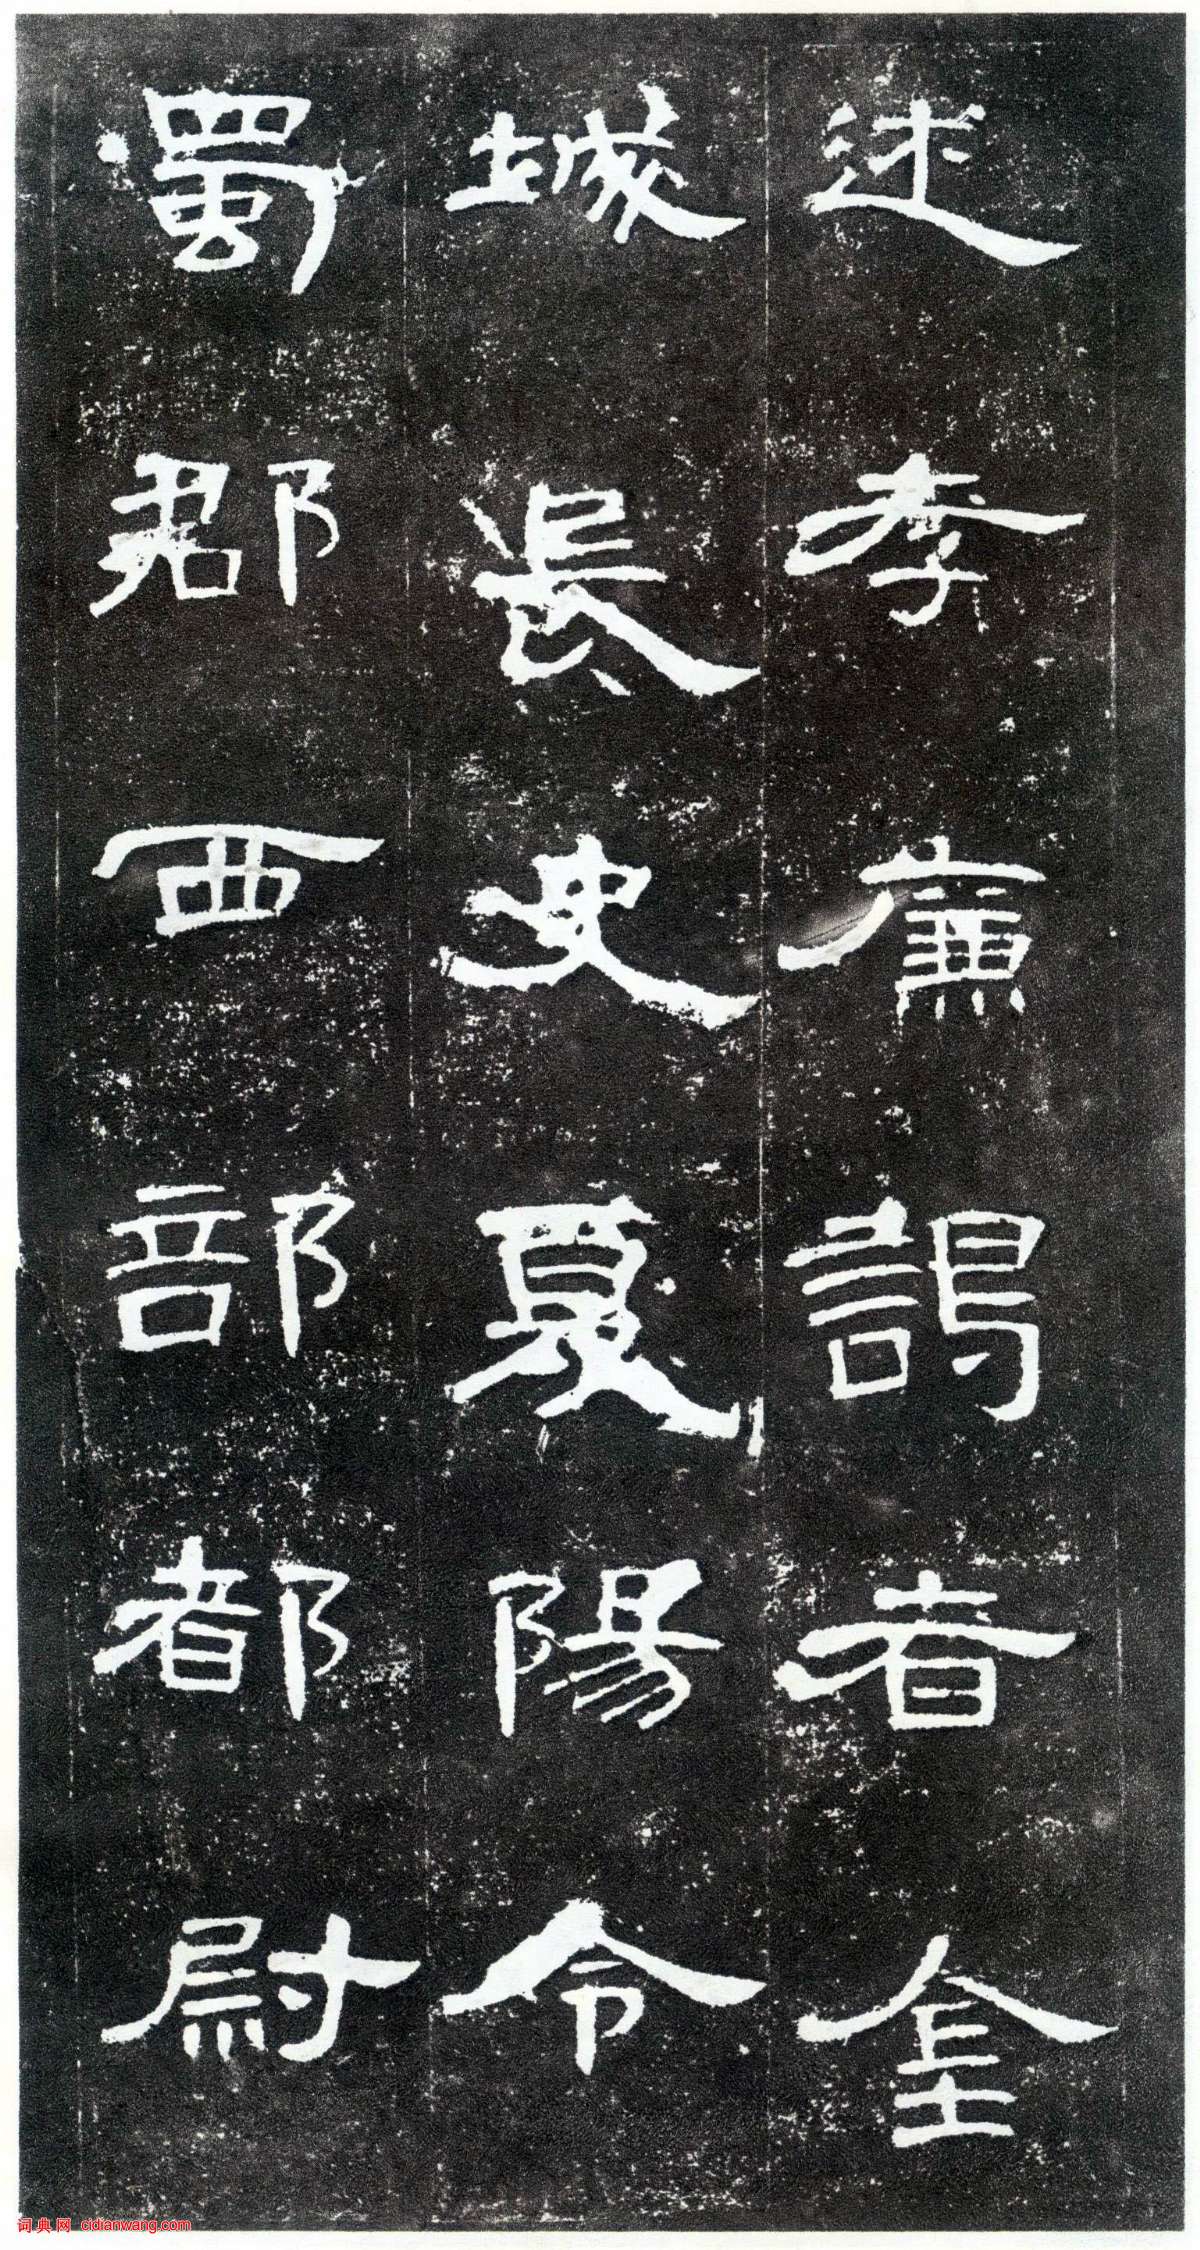 述孝廉謁者金
城長史夏陽令
蜀郡西部都尉
词典网 cidianwang.com